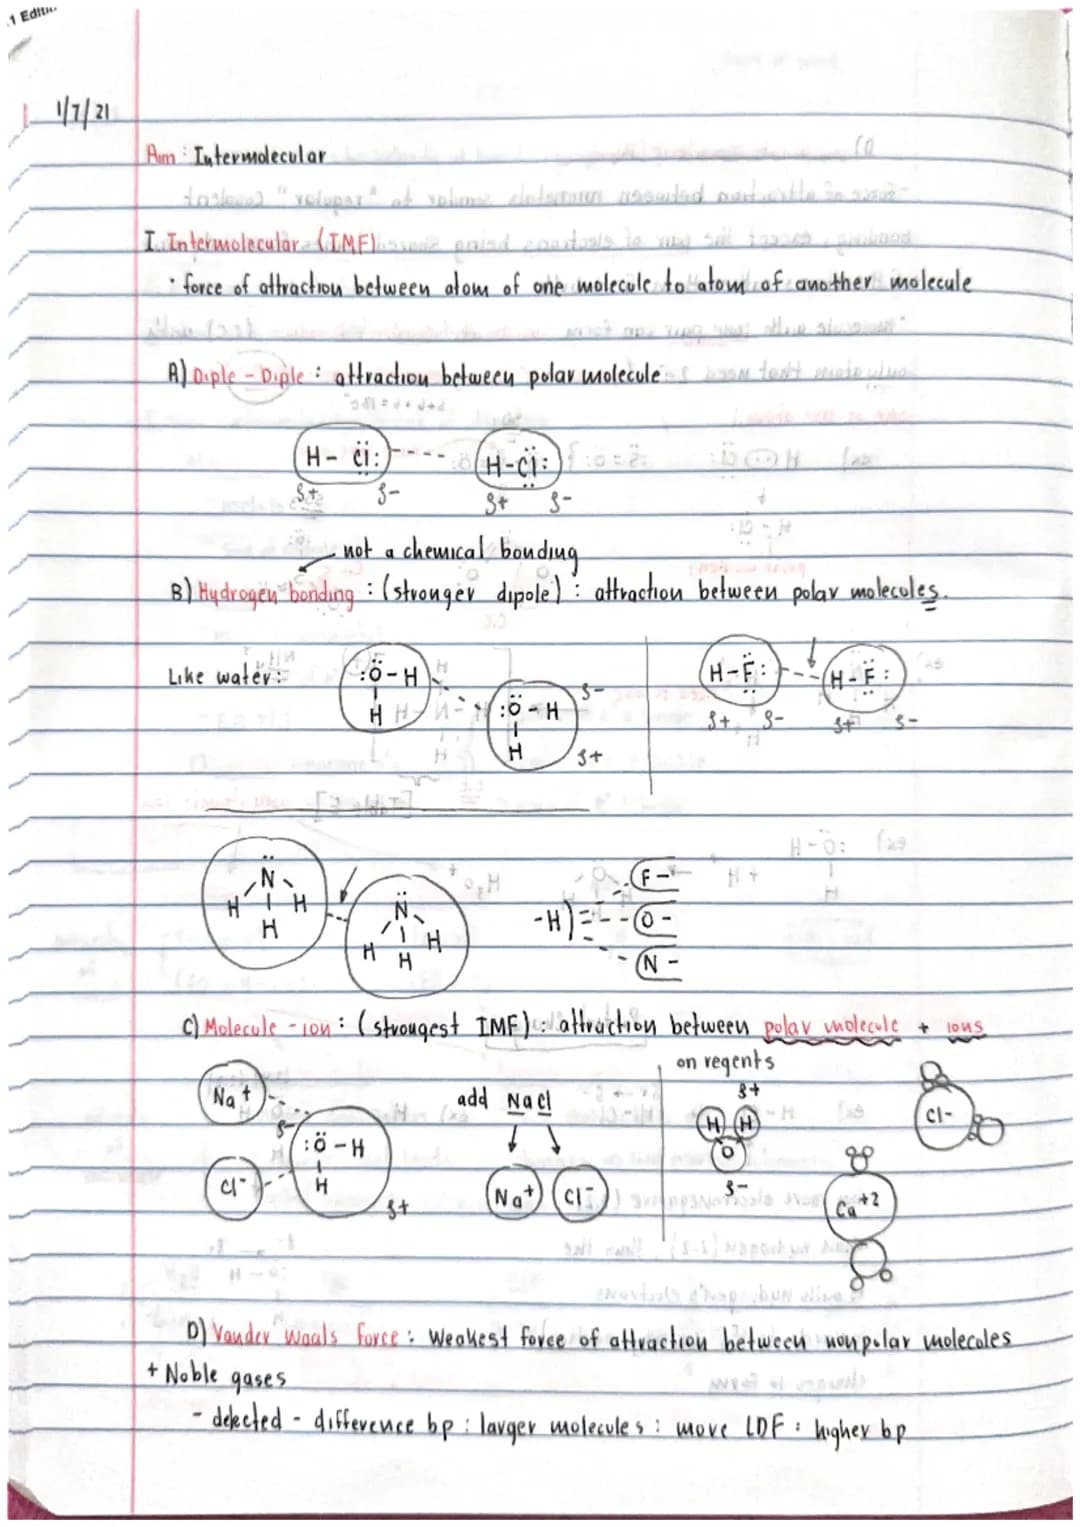 1 Editi
1/7/21
Aim : Intermolecular
I. Intermolecular (IMF)
· force of attraction between atom of one molecule to atom of another molecule
A) Diple - Diple : attraction between polar molecule
H - Cl: H-Cl:
δ+ δ- δ+ δ-
not a chemical bonding
B) Hydrogen bonding : (stronger dipole) : attraction between polar molecules.
Like water:
:Ö-H H-F: H-F:
H :Ö-H δ- δ+ δ- δ+ δ-
H δ+
N
H H H
N
H H H
-H) = F-
O -
N -
C) Molecule - ion : (strongest IMF) : attraction between polar molecule + ions
on regents
Na+ δ- :Ö-H H δ+
Cl-
add NaCl
Na+ Cl-
δ+
H H
O
δ-
Cl-
Ca+2
D) Vander Waals Force : Weakest force of attraction between nonpolar molecoles
+ Noble gases
- detected - difference bp : larger molecules : more LDF : higher bp